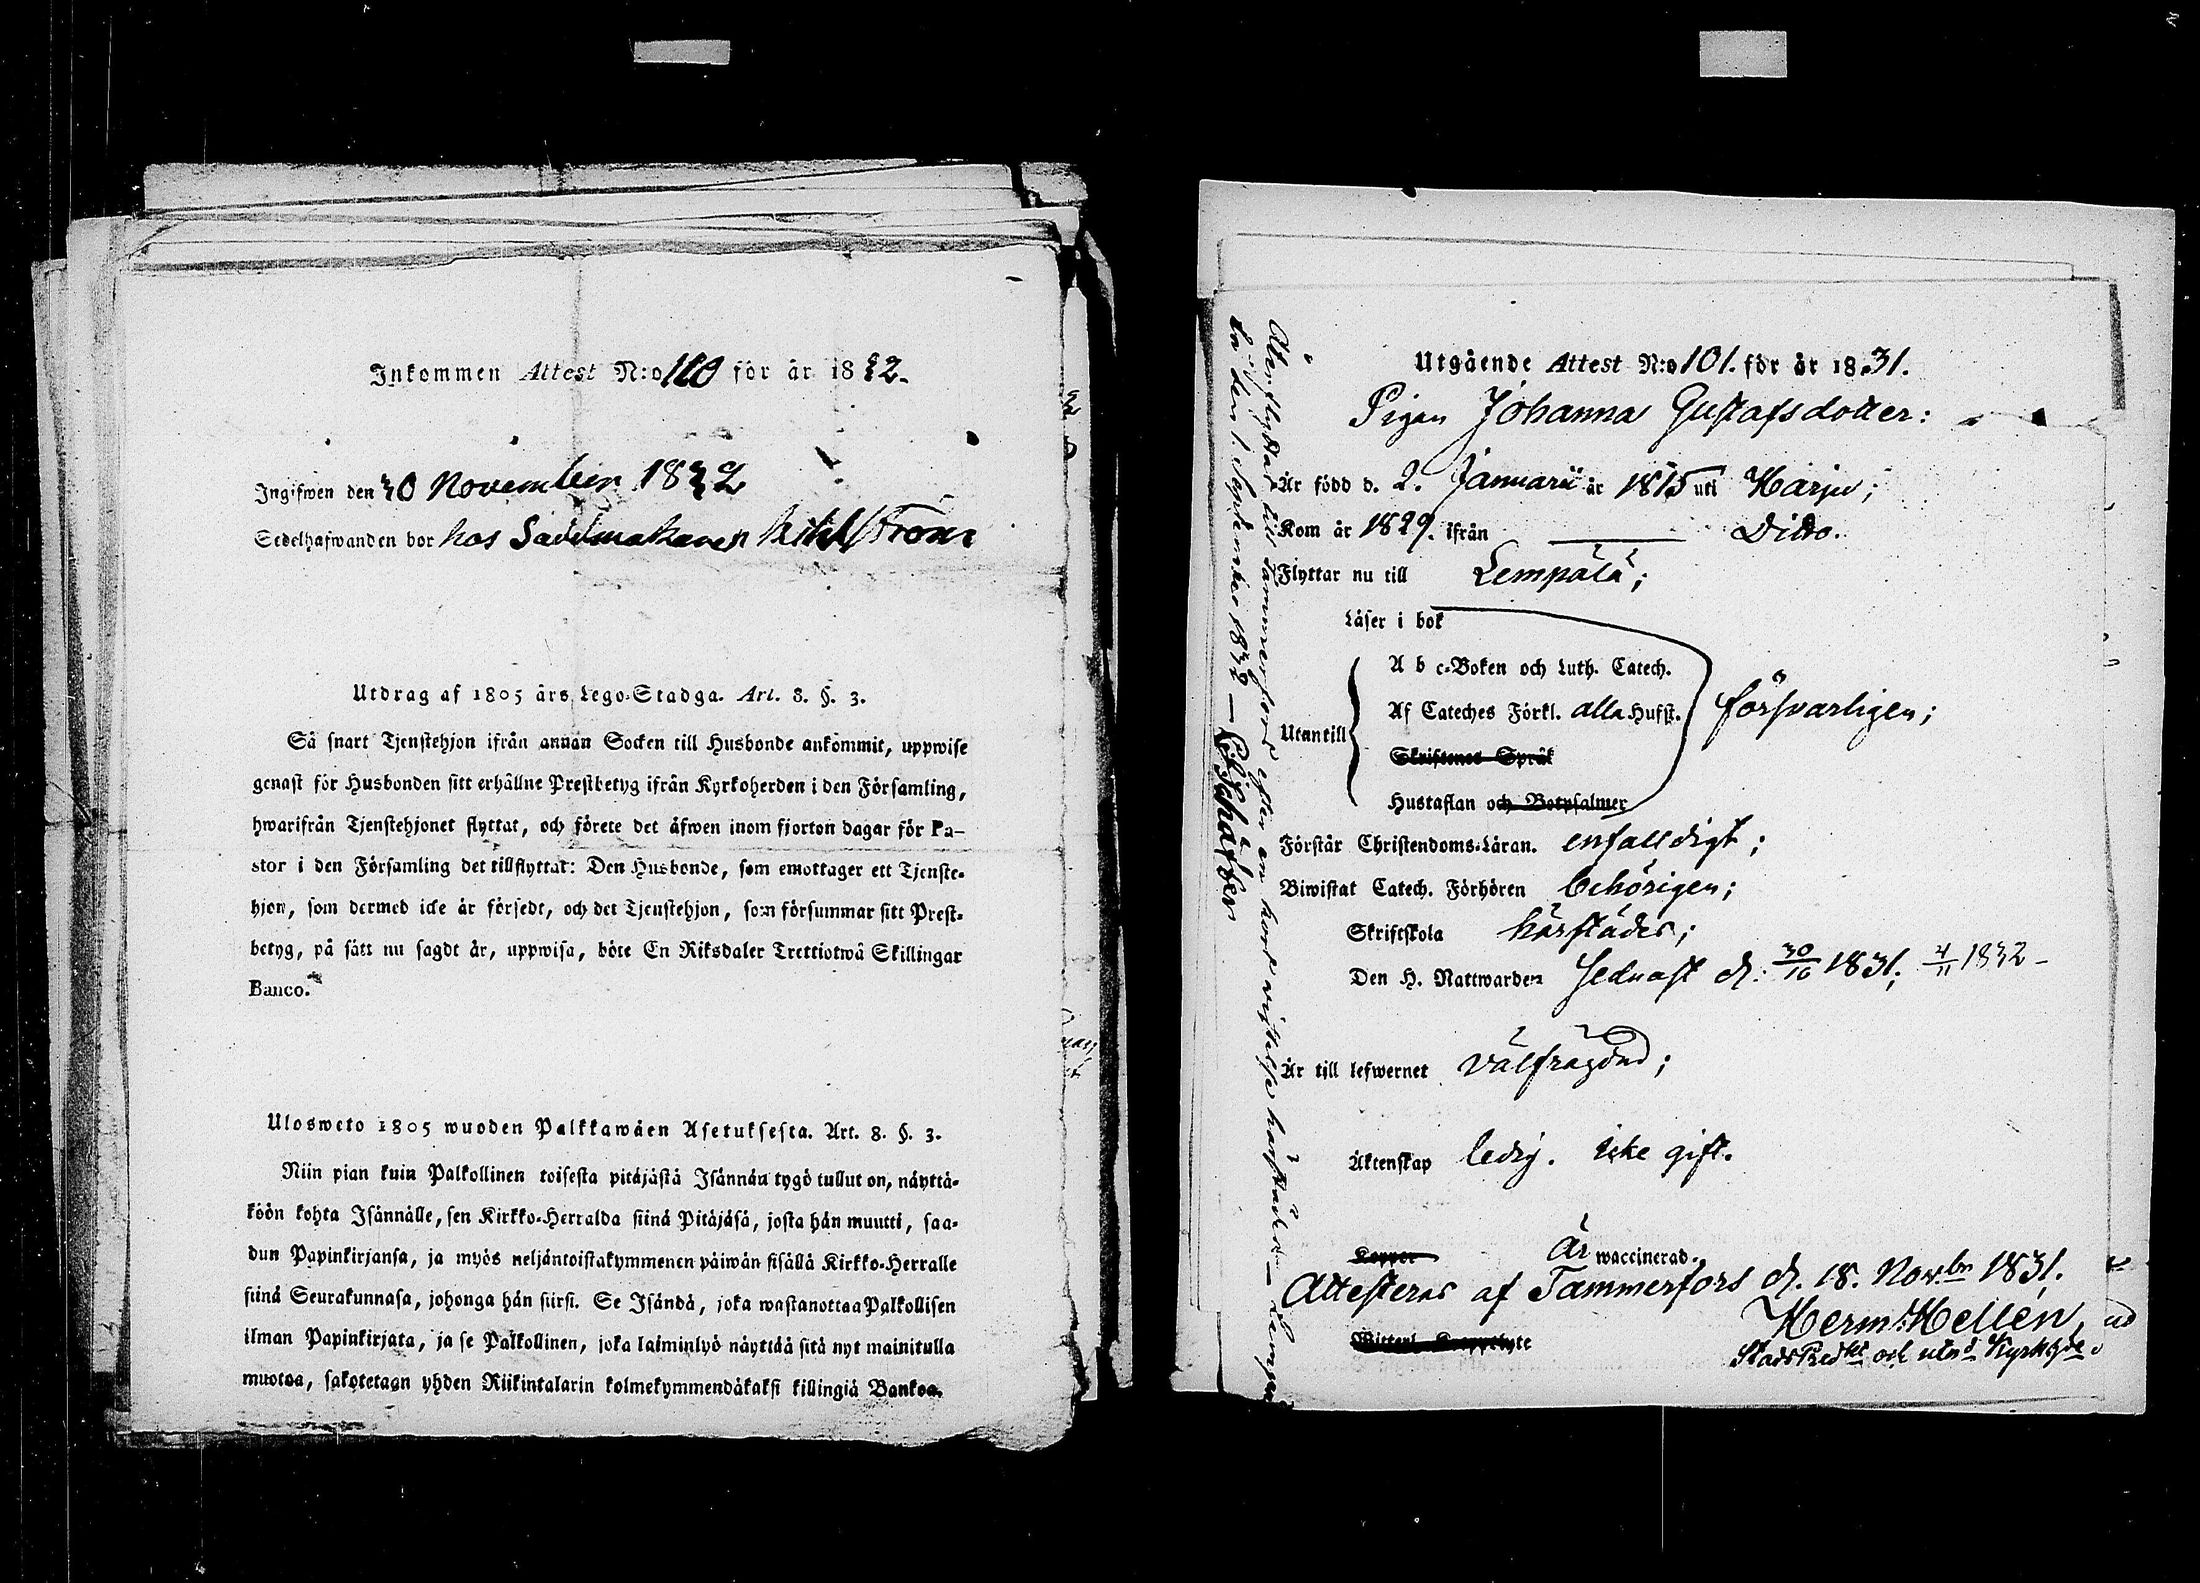 Inkommen Attest N:o 110 för år 1832.
Ingifwen den 30 November 1832
Sedelhafwanden bor hos Sadelmakaren
Utdrag af 1805 års Lego-Stadga. Art. 8. §. 3.
Så snart Tjenstehjon ifrån annan Socken till Husbonde ankommit, uppwise
genast för Husbonden sitt erhållne Prestbetyg ifrån Kyrkoherden i den Församling,
hwarifrån Tjenstehjonet flyttat, och förete det äfwen inom fjorton dagar för Pa-
stor i den Församling det tillflyttat: Den Husbonde, som emottager ett Tjenste-
hjon, som dermed icke är försedt, och det Tjenstehjon, som försummar sitt Prest-
betyg, på sätt nu sagdt är, uppwisa, böte En Riksdaler Trettiotwå Skillingar
Banco.
Ulosweto 1805 wuoden Palkkawäen Asetuksesta. Art. 8. §. 3.
Niin pian kuin Palkollinen toisesta pitäjästä Isännän tygö tullut on, näyttä-
köön kohta Isännälle, sen Kirkko-Herralda siinä Pitäjäsä, josta hän muutti, saa-
dun Papinkirjansa, ja myös neljäntoistakymmenen päiwän sisällä Kirkko-Herralle
siinä Seurakunnasa, johonga hän siirsi. Se Isändä, joka wastanottaa Palkollisen
ilman Papinkirjata, ja se Palkollinen, joka laiminlyö näyttää sitä nyt mainitulla
muotoa, sakotetaan yhden Riikintalarin kolmekymmendäkaksi killingiä Bankoa.
Utgående Attest N:o 101. för år 1831.
Pigan Johanna Gustafsdotter:
Är född d. 2. Januarii år 1815 uti Harju;
Kom år 1829. ifrån Ditto.
Flyttar nu till Lempälä;
Läser i bok
A b c-Boken och Luth. Catech.
Af Cateches Förkl. alla Hufst. försvarligen;
Utantill
Skriftenes Språk
Hustaflan och Botpsalmer
Förstår Christendoms-Läran. enfalldigt;
Biwistat Catech. Förhören behörigen;
Skriftskola härstädes;
Den H. Nattwarden sednast d: 30/10 1831; 4/11 1832-
Är till lefwernet välfrägdad;
Äktenskap ledig. icke gift.
Koppor Är waccinerad.
Attesteras af Tammerfors d. 18. Nov:br 1831.
Herm: Hellén,
Återflyttar till Tammerfors efter en kort vistelse härstädes - Lempä
lä den 1. September 1832 -